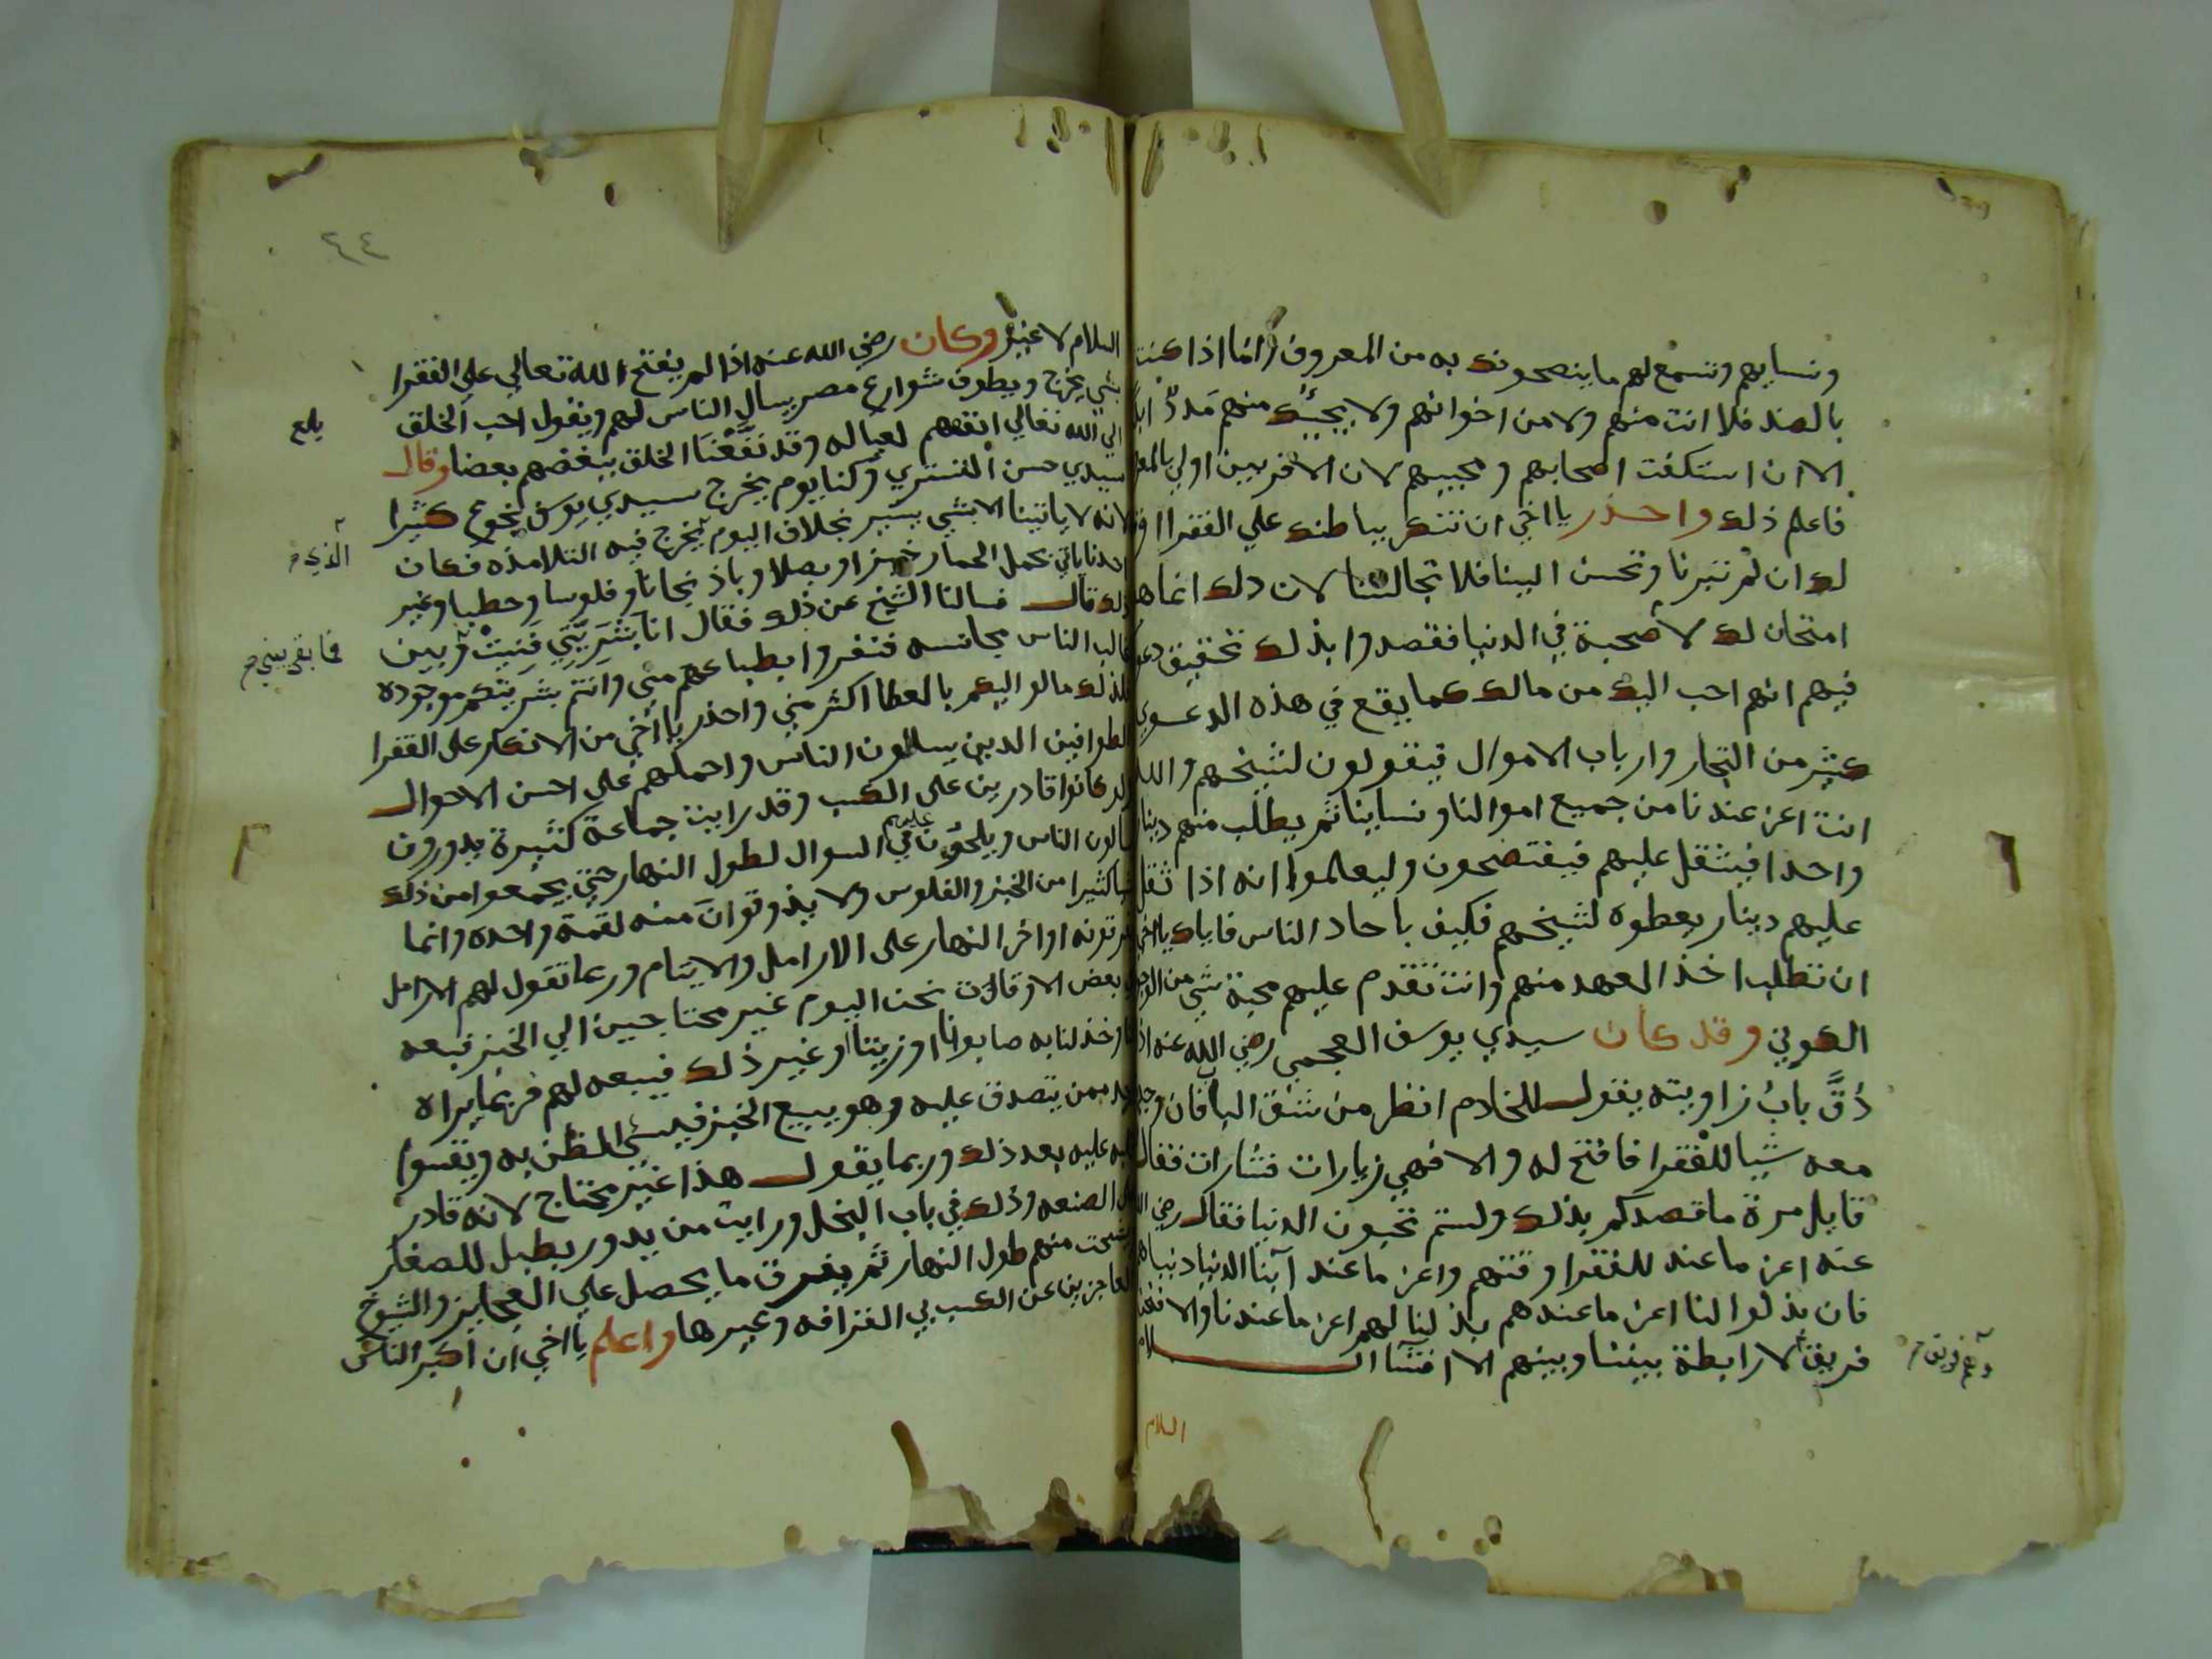 ونسايهم وتسمع لهم ما ينصحونك به من المعروف وانما اذا كنت
بالضد فلا انت منهم ولا من اخوانهم ولا يجيئك منهم مَددٌ
الا ان استكفت اصحابهم ومحبيهم لان الاقربين اولي
فاعلم ذلك واحذر يا اخي ان تنكر بباطنك علي الفقرا اذا
لك ان لم تبرنا وتحسن الينا فلا تجالسنا لان ذلك انما
امتحان لك لا محبة في الدنيا فقصدوا بذلك تحقيق
فيهم انهم احب اليك من مالك كما يقع في هذه الدعوي
كثير من التجار وارباب الاموال فيقولون لشيخهم والله
انت اعز عندنا من جميع اموالنا ونساينا ثم يطلب منهم دينارا
واحدا فيثقل عليهم فيفتضحون وليعلموا انه اذا ثقل
عليهم دينار يعطوه لشيخهم فكيف باحاد الناس فاياك يا اخي
ان تطلب اخذ العهد منهم وانت تقدم عليهم محبة شي من
الكوني وقد كان سيدي يوسف العجمي رضي الله عنه اذا
دُقَّ بابُ زاويته يقول للخادم انظر من شق الباب فان وجد
معه شيا للفقرا فافتح له والا فهي زيارات فشارات فقال
قايل مرة ما قصدكم بذلك ولستم تحبون الدنيا فقال رضي الله
عنه اعز ما عند للفقرا وقتهم واعز ما عند ابنا الدنيا دنياهم
فان بذلوا لنا اعز ما عندهم بذلنا لهم اعز ما عندنا والا
فريق لا رابطة بيننا وبينهم الا افشا السلام
السلام
٤٤
السلام لا غير وكان رضي الله عنه اذا لم يفتح الله تعالي علي الفقرا
بشي يخرج ويطوف شوارع مصر يسال الناس لهم ويقول احب الخلق
الي الله تعالي انفعهم لعياله وقد نفعنا الخلق ببعضهم بعضا وقال
سيدي حسن التستري وكنا يوم يخرج سيدي يوسف نجوع كثيرا
لانه لا ياتينا الا بشي يسير بخلاف اليوم يخرج فيه التلامذه فكان
احدنا ياتي بحمل الحمار خبزا وبصلا وباذنجانا وفلوسا وحطبا وغير
ذلك قال فسالنا الشيخ عن ذلك فقال انا بَشَريَّتي فَنيتْ وبين
غالب الناس مجانسه فنفروا بطباعهم مني وانتم بشريتكم موجوده
فلذلك مالوا اليكم بالعطا اكثر مني واحذر يا اخي من الانكار علي الفقرا
الطوافين الذين يسالون الناس واحملهم علي احسن الاحوال
ولو كانوا قادرين علي الكسب وقد رايت جماعة كثيرة يدورون
يسالون الناس ويلحون عليهم في السوال لطول النهار حتي يجمعوا من ذلك
شيا كثيرا من الخبز والفلوس ولا يذوقوا منه لقمة واحده وانما
يفرقونه اواخر النهار علي الارامل والايتام وربما تقول لهم الارامل
بعض الاوقات نحن اليوم غير محتاجين الي الخبز فبعه
وخذ لنا به صابونا او زيتا او غير ذلك فيبيعه لهم فربما يراه
احد ممن يتصدق عليه وهو يبيع الخبز فيسي الظن به ويقسوا
قلبه عليه بعد ذلك وربما يقول هذا غير محتاج لانه قادر
علي الصنعه وذلك في باب البخل ورايت من يدور يطبل للصغار
يشحت منهم طول النهار ثم يفرق ما يحصل علي العجايز والشيوخ
العاجزين عن الكسب في القرافه وغيرها واعلم يا اخي ان اكثر الناس
بلغ
الذي